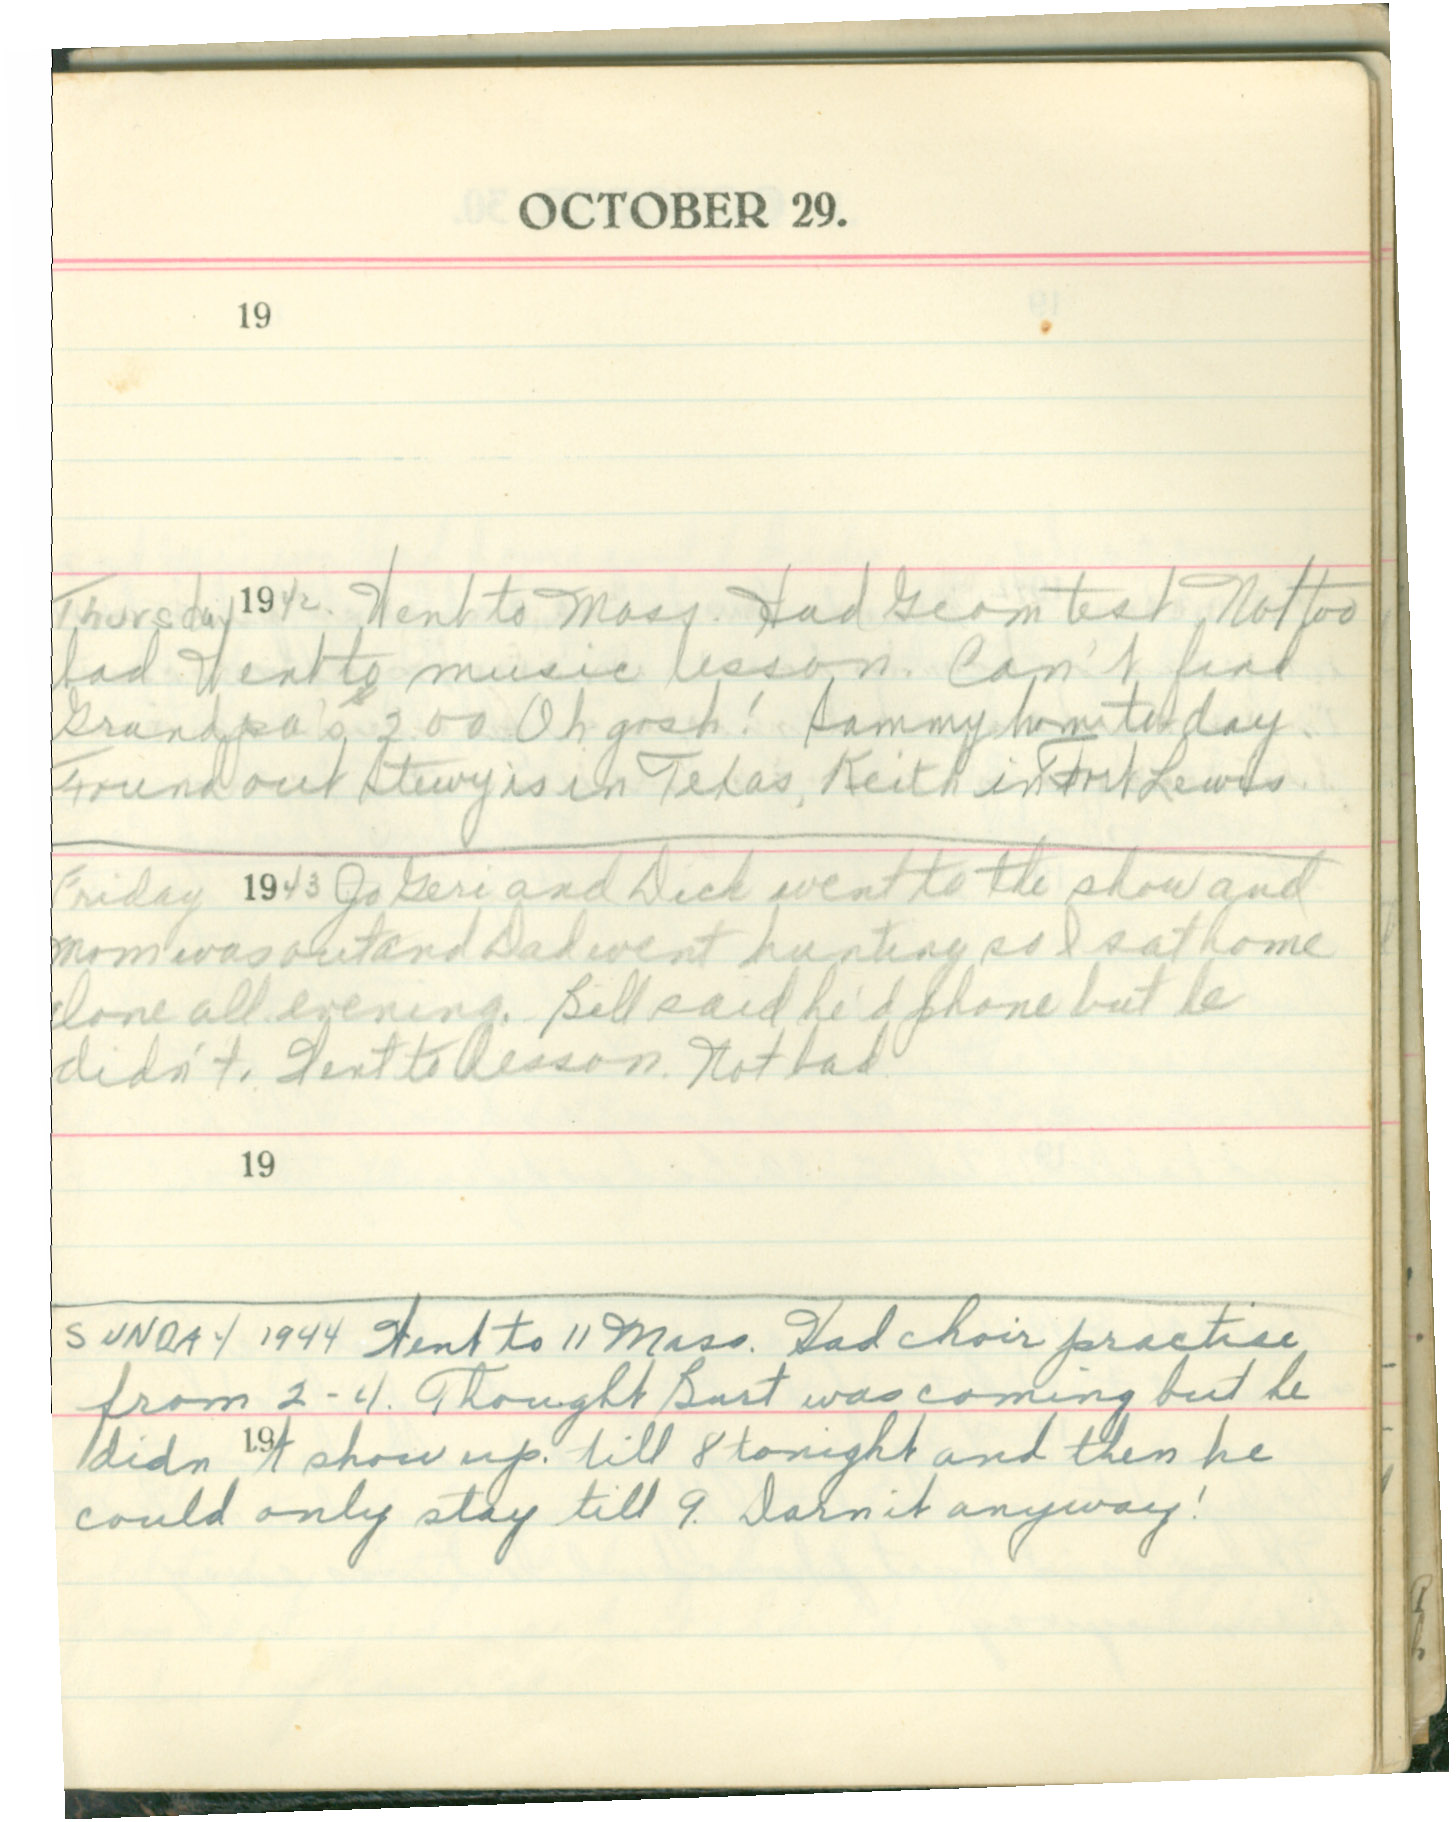 OCTOBER 29.
19
Thursday 1942. Went to Mass. Had Geom test Not too
bad Went to music lesson. Can't find
Grandpa's $2 00 Oh gosh! Sammy home today.
Found out Stewy is in Texas, Keith in Fort Lewis.
Friday 1943 Jo Geri and Dick went to the show and
Mom was out and Dad went hunting so I sat home
alone all evening. Bill said he'd phone but he
didn't. Went to lesson. Not bad
19
SUNDAY 1944 Went to 11 Mass. Had choir practise
from 2-4. Thought Burt was coming but he
19
didn't show up. till 8 tonight and then he
could only stay till 9. Darn it anyway!